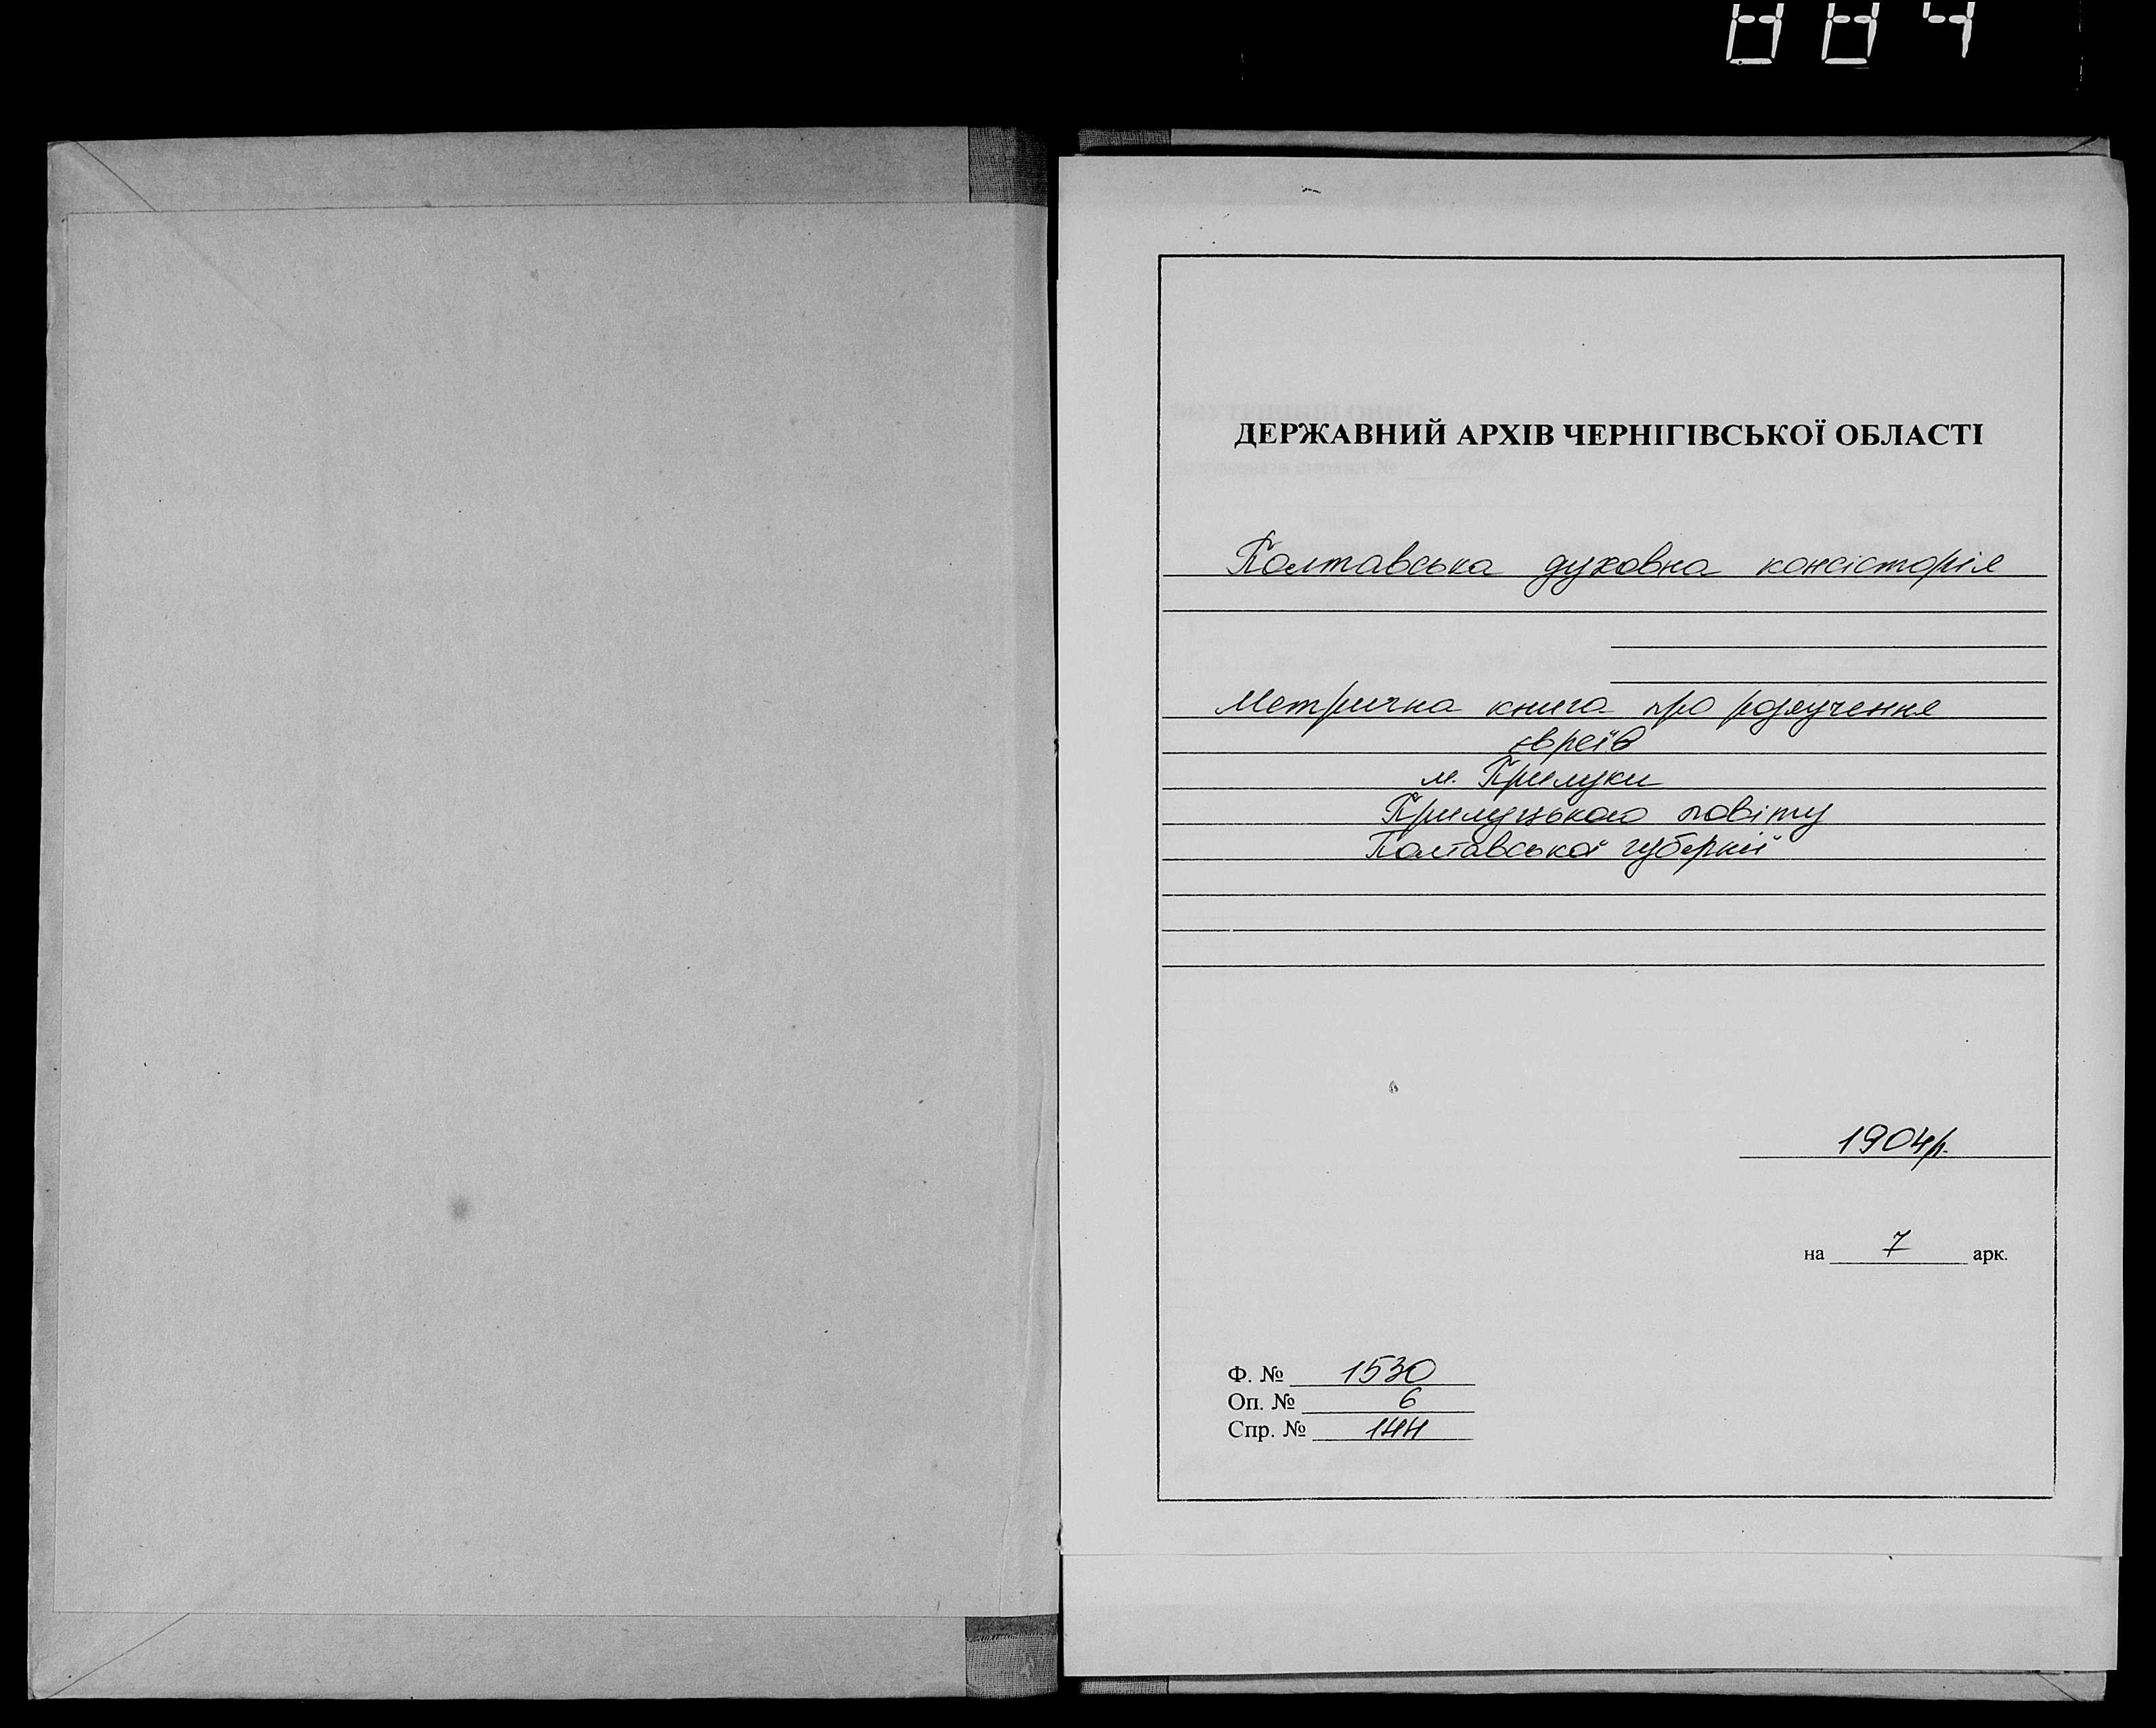 884
ДЕРЖАВНИЙ АРХІВ ЧЕРНІГІВСЬКОЇ ОБЛАСТІ
Полтавська духовна консісторія
Метрична книга про розлучення
євреїв
м. Прилуки
Прилуцького повіту
Полтавської губернії
1904р.
на 7 арк.
Ф. № 1530
Оп. № 6
Спр. № 144